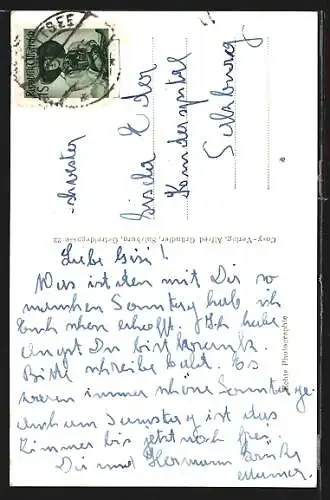 SEE
REPUBLIK ÖSTERREICH
Schwester
Gisela Eder
Kinderspital
Salzburg
Cosy-Verlag, Alfred Gründler, Salzburg, Getreidegasse 22
Echte Photographie
Liebe Gisi!
Was ist den mit Dir so
manchen Sonntag hab ich
Euch schon erhofft. Ich habe
Angst Du bist krank.
Bitte schreibe bald. Es
waren immer schöne Sonntage
auch am Samstag ist das
Zimmer bis jetzt noch frei
Dir und Hermann
Mama.